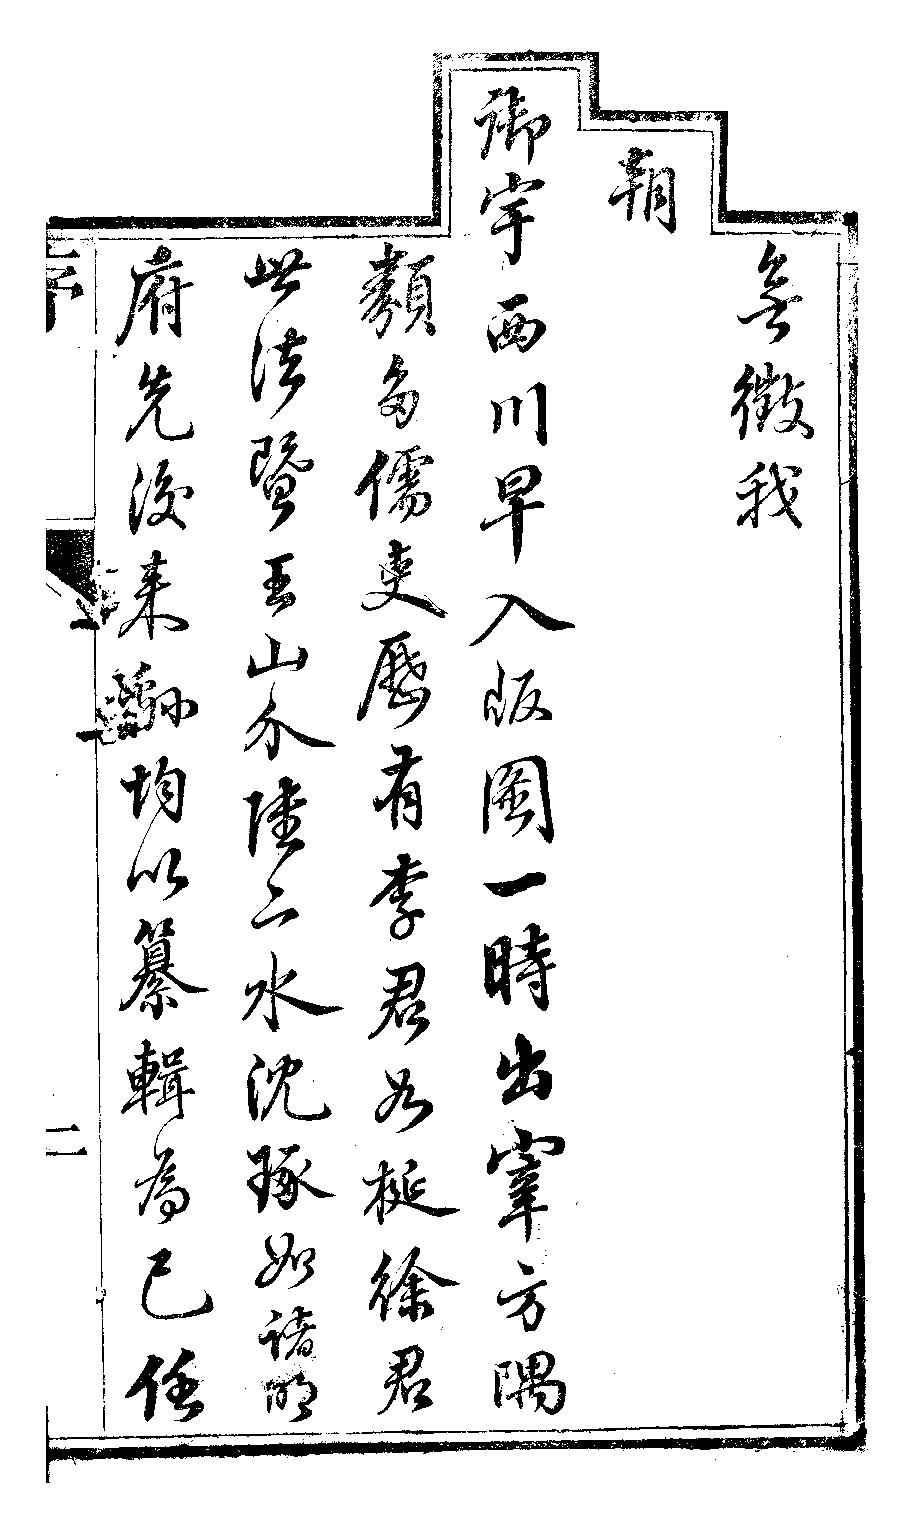 無徵我
朝
御宇西川早入版圖一時出宰方隅
類多儒吏歷有李君如梃徐君
世法暨王山介陸二水沈琢如諸明
府先後來蘇均以纂輯為己任
序
二